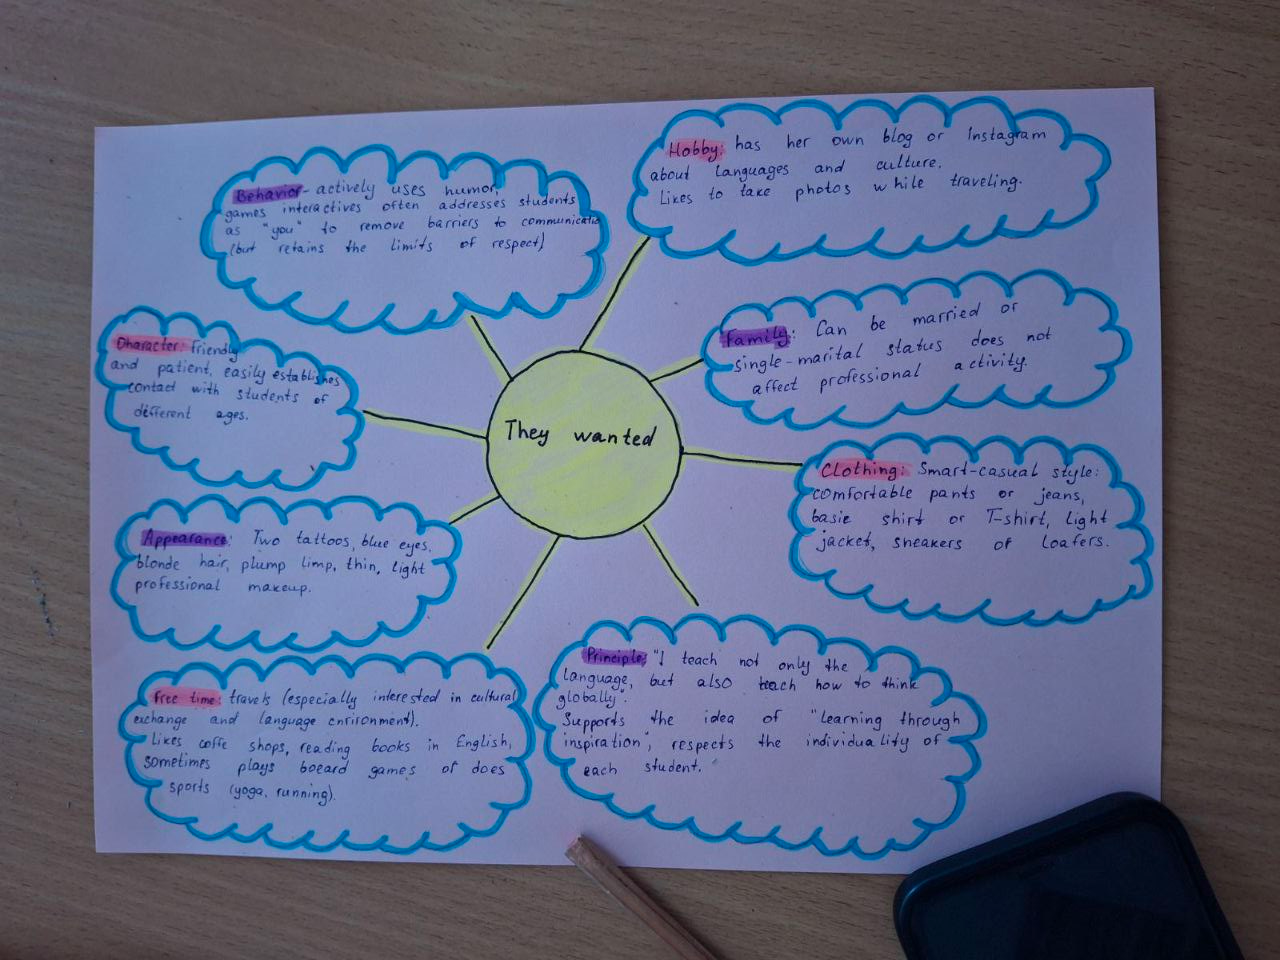 They wanted
Behavior - actively uses humor,
games interactives often addresses students
as "you" to remove barriers to communicatio
(but retains the limits of respect)
Hobby: has her own blog or Instagram
about languages and culture.
Likes to take photos while traveling.
Character: friendly
and patient, easily establishes
contact with students of
different ages.
Family: Can be married or
single-marital status does not
affect professional activity.
Appearance: Two tattoos, blue eyes,
blonde hair, plump limp, thin, light
professional makeup.
Clothing: Smart-casual style:
comfortable pants or jeans,
basic shirt or T-shirt, light
jacket, sneakers or loafers.
Free time: travels (especially interested in cultural
exchange and language environment).
Likes coffe shops, reading books in English,
sometimes plays boeard games or does
sports (yoga, running).
Principle: "I teach not only the
language, but also teach how to think
globally".
Supports the idea of "learning through
inspiration", respects the individuality of
each student.